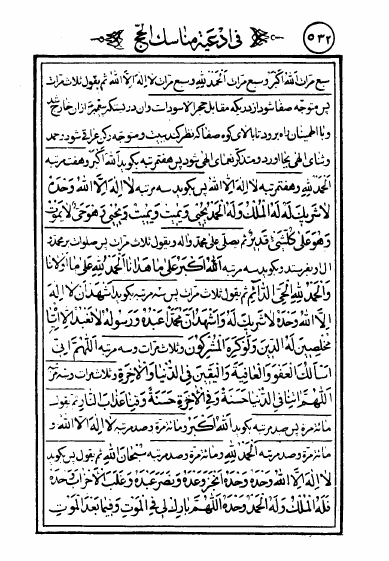 ۵۳۲
فی ادعیة مناسك الحجّ
سبع مرّات اللهُ اکبَرُ و سبع مرّات اَلحَمدُ لِلّهِ و سبع مرّات لا اِلهَ اِلّا اللهُ ثم یقول ثلاث مرّات
پس متوجّه صفا شود از دریکه مقابل حجر الاسود است و ان در مسجد پیغمبر از ان خارج شد
و با اطمینان راه رود تا بالای کوه صفا که نظر کند ببیت و متوجه رکن عراقی شود و حمد
و ثنای الهی بجا اورد و متذکر نعمای الهی شود پس هفت مرتبه بکوید اَللهُ اَکبَرُ و هفت مرتبه
اَلحَمدُ لِلّهِ و هفت مرتبه لا اِلهَ اِلَّا اللهُ پس بکوید سه مرتبه لا اِلهَ اِلَّا اللهُ وَحدَهُ
لا شَریكَ لَهُ لَهُ المُلكُ وَ لَهُ الحَمدُ یُحیی وَ یُمیتُ وَ یُمیتُ وَ یُحیی وَ هُوَ حَیٌّ لا یَمُوتُ
وَ هُوَ عَلی کُلِّ شَیءٍ قَدیرٌ ثم یصلّی علی محمّد و اله و یقول ثلاث مرّات پس صلوات بر محمد و
ال او بفرستد و بکوید سه مرتبه اَللهُ اَکبَرُ عَلی ما هَدانا اَلحَمدُ لِلّهِ عَلی ما اَولانا
وَ الحَمدُ لِلّهِ الحَیِّ الدّائِمِ ثم یقول ثلاث مرّات پس سه مرتبه بکوید اَشهَدُ اَن لا اِلهَ
اِلَّا اللهُ وَحدَهُ لا شَریكَ لَهُ وَ اَشهَدُ اَنَّ مُحَمَّداً عَبدُهُ وَ رَسُولُهُ لا نَعبُدُ اِلّا اِیّاهُ
مُخلِصینَ لَهُ الدّینَ وَ لَو کَرِهَ المُشرِکُونَ و ثلاث مرّات و سه مرتبه اَللّهُمَّ اِنّی
اَسأَلُكَ العَفوَ وَ العافِیَةَ وَ الیَقینَ فِی الدُّنیا وَ الاخِرَةِ و ثلاث مرّات و سه مرتبه
اَللّهُمَّ اتِنا فِی الدُّنیا حَسَنَةً وَ فِی الاخِرَةِ حَسَنَةً وَ قِنا عَذابَ النّارِ ثم یقول
مائة مرّة پس صد مرتبه بکوید اَللهُ اَکبَرُ و مائة مرّة و صد مرتبه لا اِلهَ اِلَّا اللهُ و
مائة مرّة و صد مرتبه اَلحَمدُ لِلّهِ و مائة مرّة و صد مرتبه سُبحانَ اللهِ ثم یقول پس بکوید
لا اِلهَ اِلَّا اللهُ وَحدَهُ وَحدَهُ اَنجَزَ وَعدَهُ وَ نَصَرَ عَبدَهُ وَ غَلَبَ الاَحزابَ وَحدَهُ
فَلَهُ المُلكُ وَ لَهُ الحَمدُ وَحدَهُ اَللّهُمَّ بارِك لی فِی المَوتِ وَ فیما بَعدَ المَوتِ